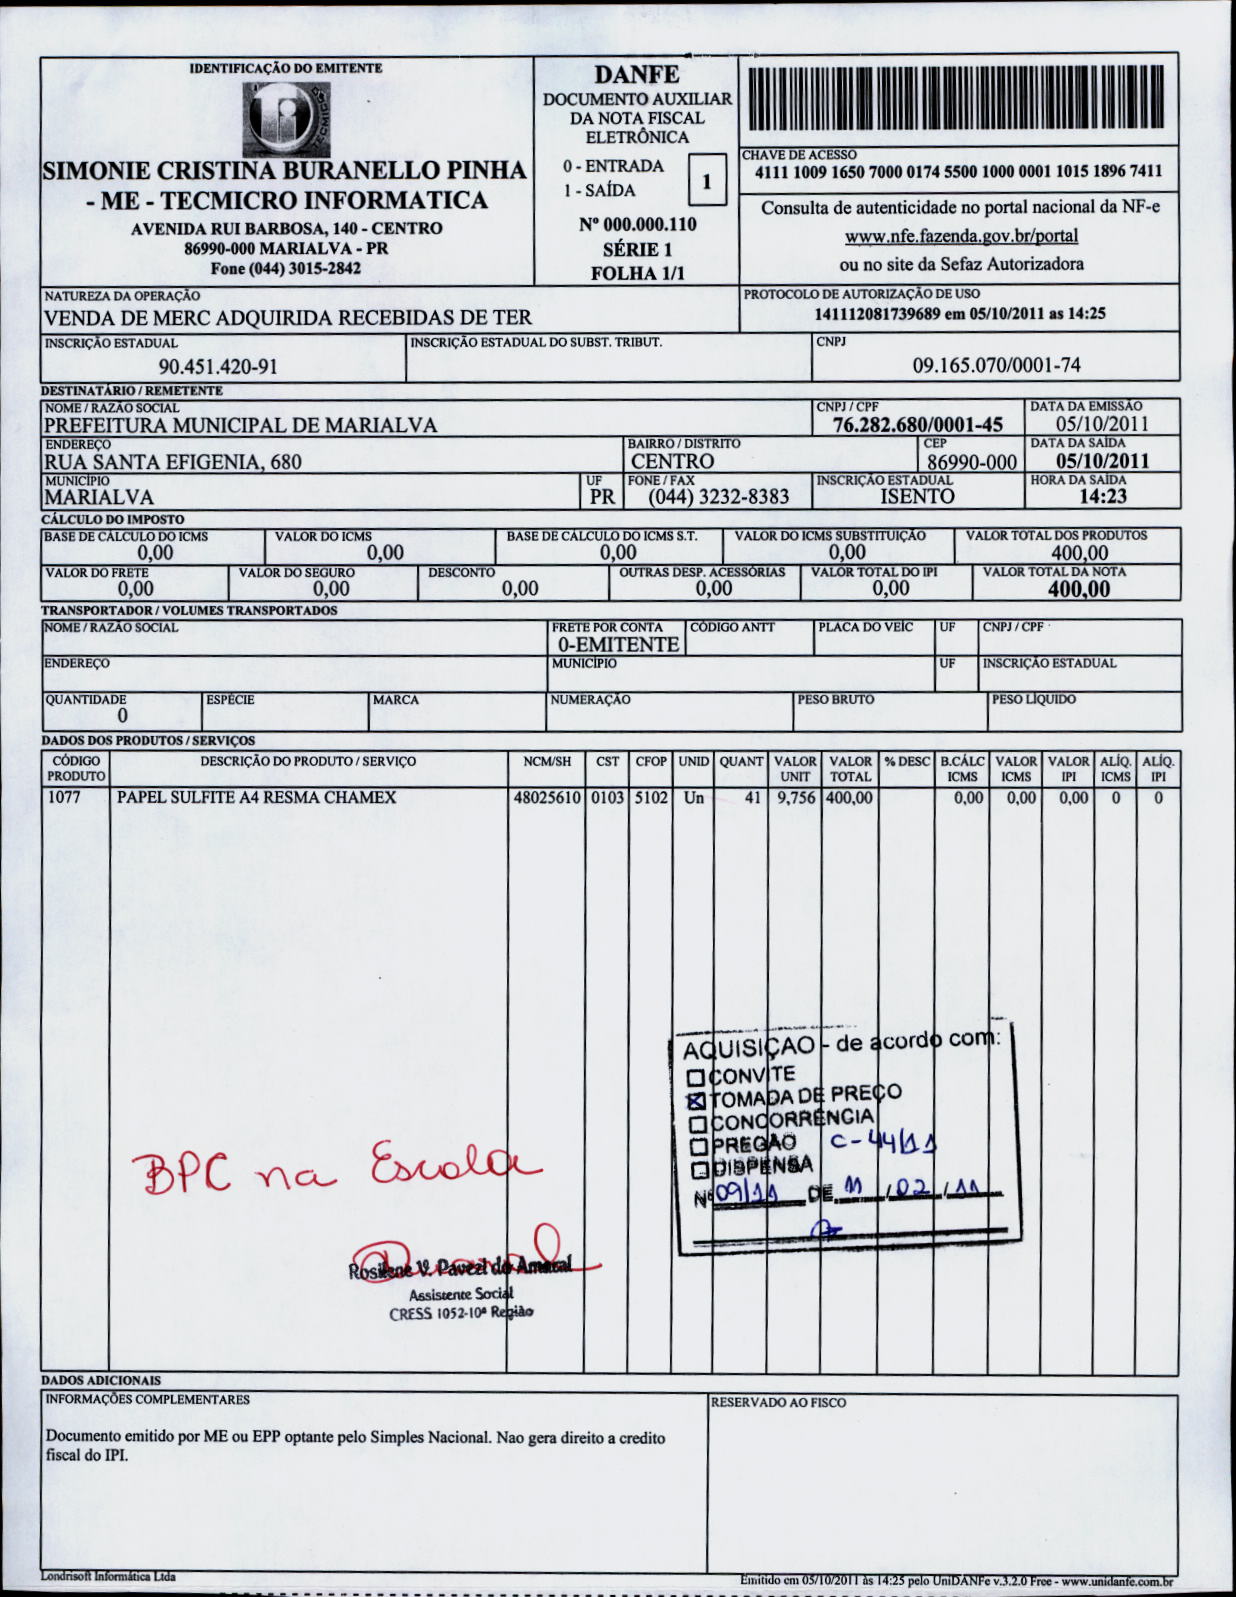 IDENTIFICAÇÃO DO EMITENTE
SIMONIE CRISTINA BURANELLO PINHA
- ME - TECMICRO INFORMATICA
AVENIDA RUI BARBOSA, 140 - CENTRO
86990-000 MARIALVA - PR
Fone (044) 3015-2842
DANFE
DOCUMENTO AUXILIAR
DA NOTA FISCAL
ELETRÔNICA
0 - ENTRADA
1 - SAÍDA
1
Nº 000.000.110
SÉRIE 1
FOLHA 1/1
CHAVE DE ACESSO
4111 1009 1650 7000 0174 5500 1000 0001 1015 1896 7411
Consulta de autenticidade no portal nacional da NF-e
www.nfe.fazenda.gov.br/portal
ou no site da Sefaz Autorizadora
NATUREZA DA OPERAÇÃO
VENDA DE MERC ADQUIRIDA RECEBIDAS DE TER
PROTOCOLO DE AUTORIZAÇÃO DE USO
141112081739689 em 05/10/2011 as 14:25
INSCRIÇÃO ESTADUAL
90.451.420-91
INSCRIÇÃO ESTADUAL DO SUBST. TRIBUT.
CNPJ
09.165.070/0001-74
DESTINATÁRIO / REMETENTE
NOME / RAZÃO SOCIAL
PREFEITURA MUNICIPAL DE MARIALVA
CNPJ / CPF
76.282.680/0001-45
DATA DA EMISSÃO
05/10/2011
ENDEREÇO
RUA SANTA EFIGENIA, 680
BAIRRO / DISTRITO
CENTRO
CEP
86990-000
DATA DA SAÍDA
05/10/2011
MUNICÍPIO
MARIALVA
UF
PR
FONE / FAX
(044) 3232-8383
INSCRIÇÃO ESTADUAL
ISENTO
HORA DA SAÍDA
14:23
CÁLCULO DO IMPOSTO
BASE DE CÁLCULO DO ICMS
0,00
VALOR DO ICMS
0,00
BASE DE CÁLCULO DO ICMS S.T.
0,00
VALOR DO ICMS SUBSTITUIÇÃO
0,00
VALOR TOTAL DOS PRODUTOS
400,00
VALOR DO FRETE
0,00
VALOR DO SEGURO
0,00
DESCONTO
0,00
OUTRAS DESP. ACESSÓRIAS
0,00
VALOR TOTAL DO IPI
0,00
VALOR TOTAL DA NOTA
400,00
TRANSPORTADOR / VOLUMES TRANSPORTADOS
NOME / RAZÃO SOCIAL
FRETE POR CONTA
0-EMITENTE
CÓDIGO ANTT
PLACA DO VEÍC
UF
CNPJ / CPF
ENDEREÇO
MUNICÍPIO
UF
INSCRIÇÃO ESTADUAL
QUANTIDADE
0
ESPÉCIE
MARCA
NUMERAÇÃO
PESO BRUTO
PESO LÍQUIDO
DADOS DOS PRODUTOS / SERVIÇOS
CÓDIGO PRODUTO DESCRIÇÃO DO PRODUTO / SERVIÇO NCM/SH CST CFOP UNID QUANT VALOR UNIT VALOR TOTAL % DESC B.CÁLC ICMS VALOR ICMS VALOR IPI ALÍQ. ICMS ALÍQ. IPI
1077 PAPEL SULFITE A4 RESMA CHAMEX 48025610 0103 5102 Un 41 9,756 400,00 0,00 0,00 0,00 0 0
AQUISIÇAO - de acordo com:
CONVITE
TOMADA DE PREÇO
CONCORRÊNCIA
PREGÃO C-44/11
DISPENSA
Nº 09/11 DE 11 / 02 / 11
BPC na Escola
Rosilene V. Pavezi do Amaral
Assistente Social
CRESS 1052-10ª Região
DADOS ADICIONAIS
INFORMAÇÕES COMPLEMENTARES
Documento emitido por ME ou EPP optante pelo Simples Nacional. Nao gera direito a credito
fiscal do IPI.
RESERVADO AO FISCO
Londrisoft Informática Ltda
Emitido em 05/10/2011 às 14:25 pelo UniDANFe v.3.2.0 Free - www.unidanfe.com.br